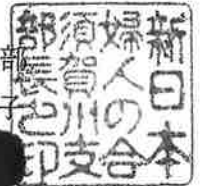 新日本
婦人の会
須賀川支
部長之印
部
子